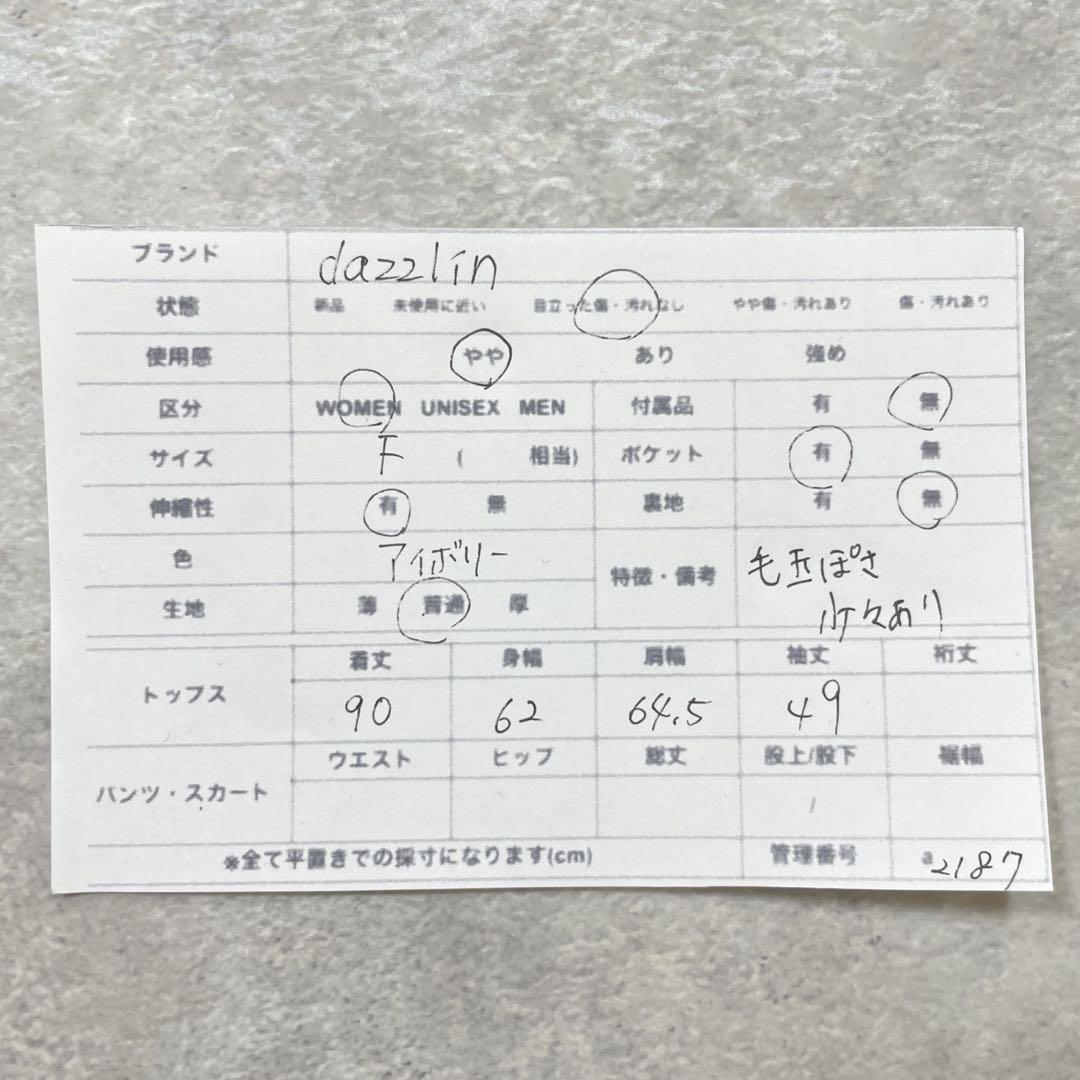 ブランド dazzlin
状態 新品 未使用に近い 目立った傷・汚れなし やや傷・汚れあり 傷・汚れあり
使用感 やや あり 強め
区分 WOMEN UNISEX MEN 付属品 有 無
サイズ F ( 相当) ポケット 有 無
伸縮性 有 無 裏地 有 無
色 アイボリー 特徴・備考 毛玉ぽさ
生地 薄 普通 厚 少々あり
着丈 身幅 肩幅 袖丈 裄丈
トップス 90 62 64.5 49
ウエスト ヒップ 総丈 股上/股下 裾幅
パンツ・スカート /
※全て平置きでの採寸になります(cm) 管理番号 a2187